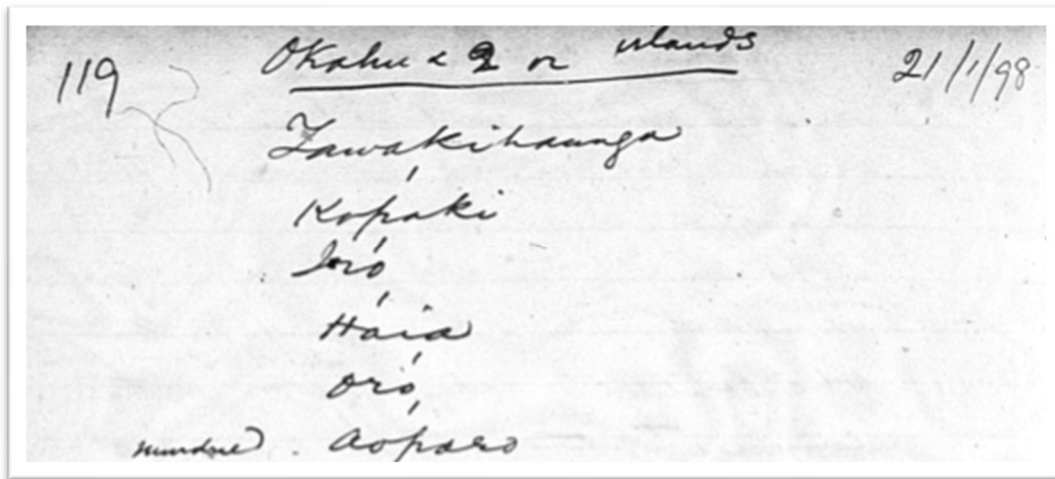 119 Okahu & 2 or islands 21/1/98
Tawakihaunga
Kopaki
Iró
Haia
Oró
Aoparo